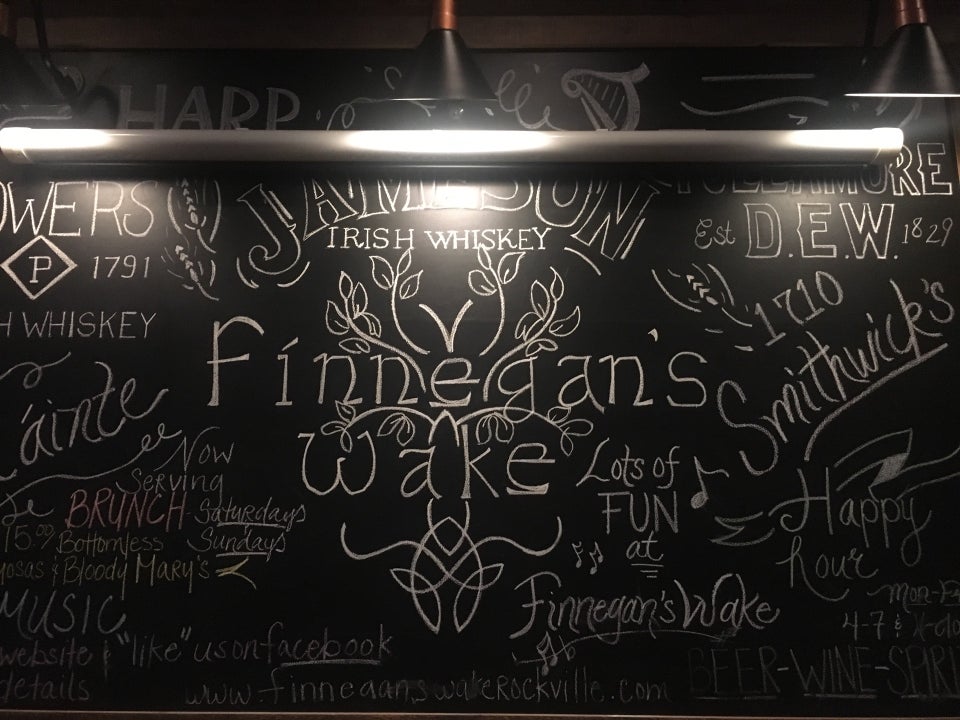 HARP
OWERS
P 1791
H WHISKEY
JAMESON
IRISH WHISKEY
TULLAMORE
Est D.E.W. 1829
1710
Smithwick's
Finnegan's
Wake
áinte
Now
Serving
BRUNCH - Saturdays
Sundays
15.00 Bottomless
mosas & Bloody Mary's
MUSIC
website & "like" us on facebook
details
www.finneganswakerockville.com
Lots of
FUN
at
Finnegan's Wake
Happy
hour
mon-Fr
4-7 &
BEER-WINE-SPIRI